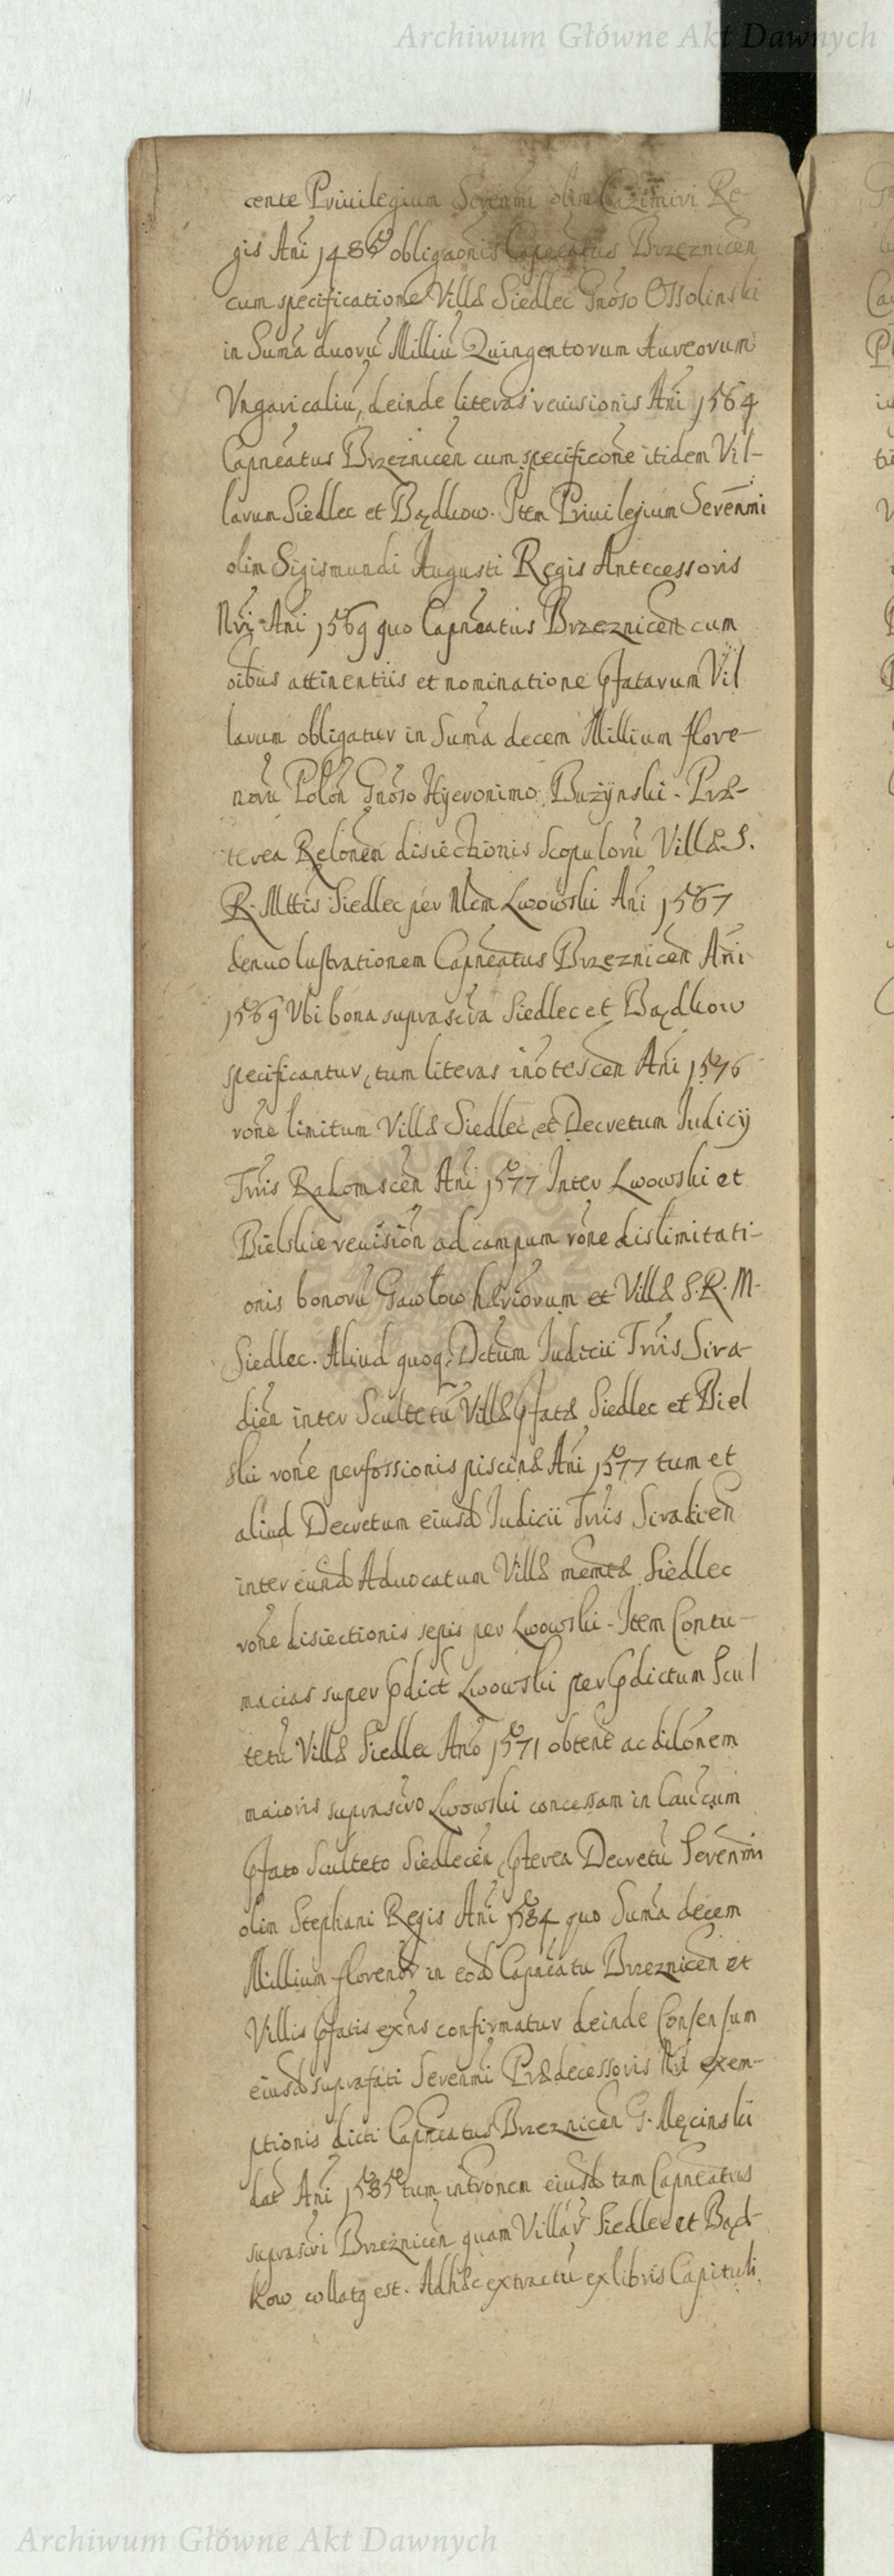 Archiwum Główne Akt Dawnych
cente Priuilegium Serenmi olim Cazimiri Re-
gis Ani 1486to obligaonis Capneatus Brzeznicen
cum specificatione Villæ Siedlec Gnoso Ossolinski
in Suma duoru Milliu Quingentorum Aureorum
Vngaricaliu, deinde literas reuisionis Ani 1564
Capneatus Brzeznicen cum specificone itidem Vil-
larum Siedlec et Bądkow. Item Priuilegium Serenmi
olim Sigismundi Augusti Regis Antecessoris
Nri Ani 1569 quo Capneatus Brzeznicen cum
oibus attinentiis et nominatione pfatarum Vil
larum obligatur in Suma decem Millium flore-
noru Polon Gnoso Hyeronimo Bużynski. Præ-
terea Relonen disiectionis Scopuloru Villæ S.
R. Mttis Siedlec per Nlem Lwowski Ani 1567
denuo lustrationem Capneatus Brzeznicen Ani
1569 Vbi bona suprascra Siedlec et Bądkow
specificantur, tum literas inotescen Ani 1576
rone limitum Villæ Siedlec, et Decretum Iudicij
Trris Radomscen Ani 1577 Inter Lwowski et
Bielskie reuision ad campum rone dislimitati-
onis bonoru Gawłow hæriorum et Villæ S. R. M.
Siedlec. Aliud quoq Dctum Iudicii Trris Sira-
dien inter Scultetu Villæ pfatæ Siedlec et Biel
ski rone perfossionis piscinæ Ani 1577 tum et
aliud Decretum eiusd Iudicii Trris Siradien
inter eund Aduocatum Villæ memtæ Siedlec
rone disiectionis sepis per Lwowski. Item Contu-
macias super pdict Lwowski per pdictum Scul
tetu Villæ Siedlec Ano 1571 obtent ac dilonem
maioris suprascro Lwowski concessam in Caucum
pfato Sculteto Siedlecen, pterea Decretu Serenmi
olim Stephani Regis Ani 1584 quo Suma decem
Millium florenor in eod Capneatu Brzeznicen et
Villis pfatis exns confirmatur deinde Consensum
eiusd suprafati Serenmi Prædecessoris Nri exem-
ptionis dicti Capneatus Brzeznicen G. Męcinski
dat Ani 1585to tum intronem eiusd tam Capneatus
suprascri Brzeżnicen quam Villar Siedlec et Bąd-
kow collatq est. Adhæc extractu ex libris Capituli
Archiwum Główne Akt Dawnych